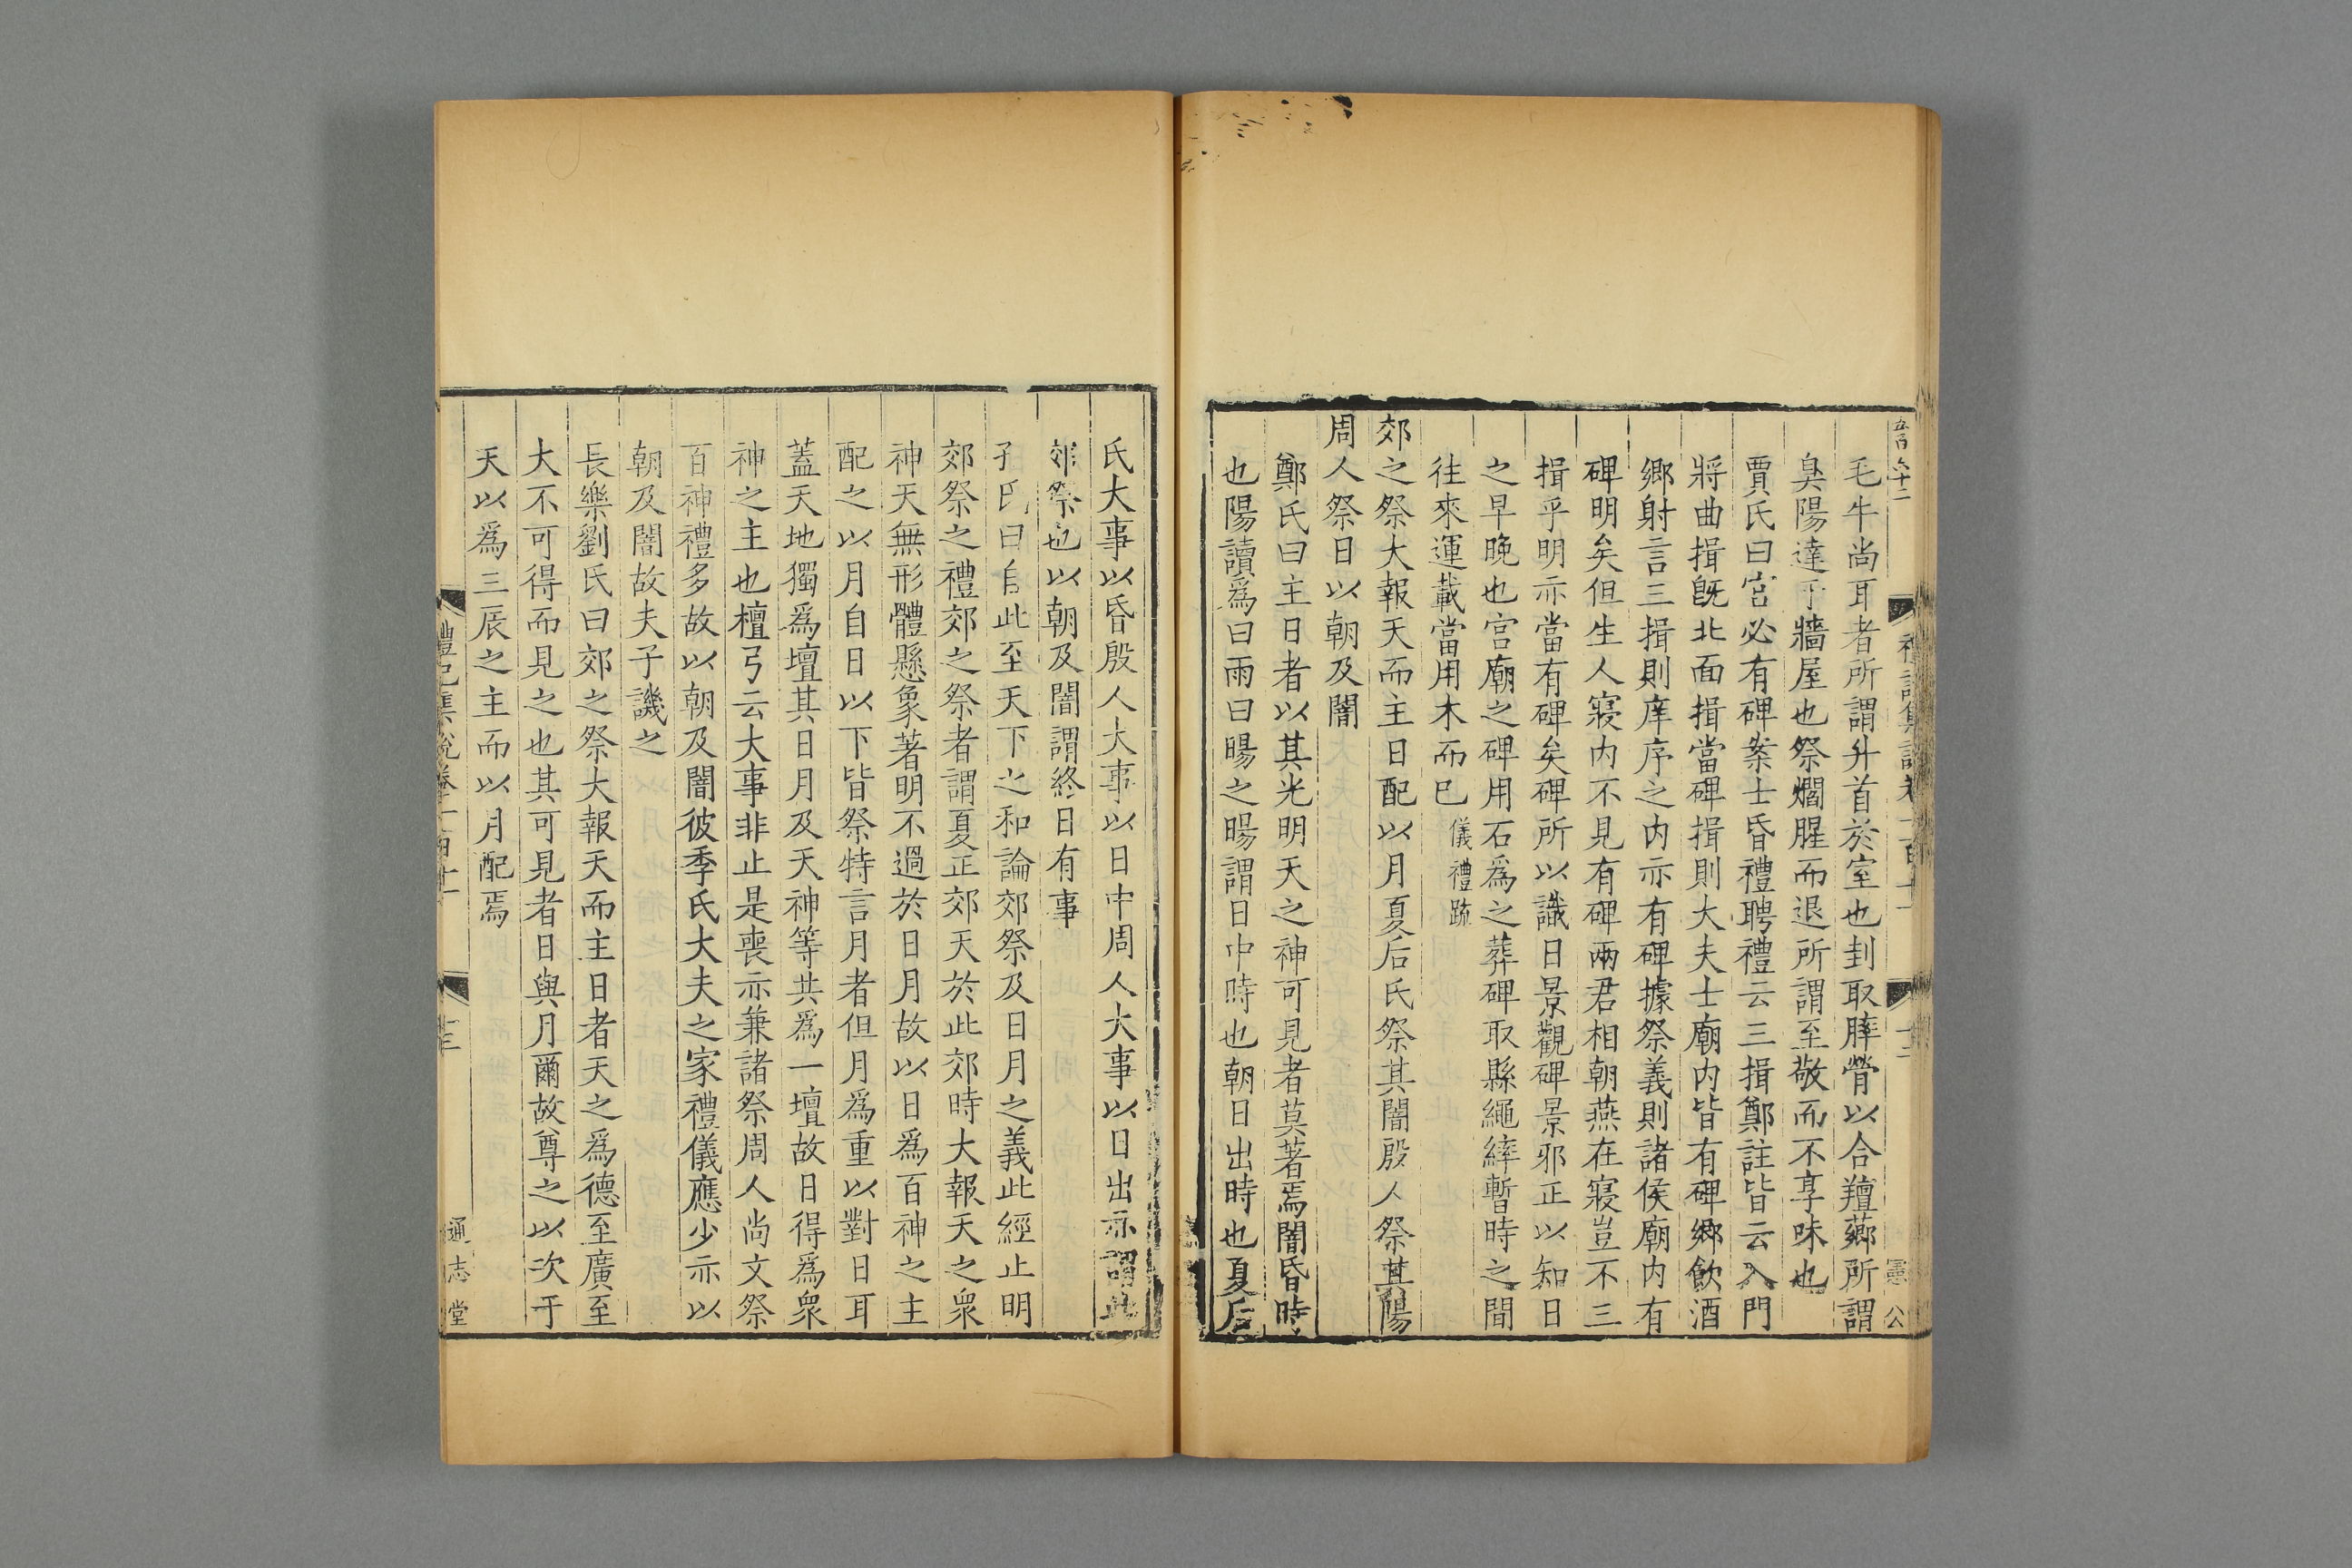 毛牛尚耳者所謂升首於室也刲取膟膋以合羶薌所謂
臭陽達于牆屋也祭爓腥而退所謂至敬而不享味也
賈氏曰宮必有碑案士昏禮聘禮云三揖鄭註皆云入門
將曲揖旣北面揖當碑揖則大夫士廟内皆有碑鄉飲酒
鄉射言三揖則庠序之内亦有碑據祭義則諸侯廟内有
碑明矣但生人寢内不見有碑兩君相朝燕在寢豈不三
揖乎明亦當有碑矣碑所以識日景觀碑景邪正以知日
之早晚也宫廟之碑用石爲之葬碑取縣繩繂暫時之間
往來運載當用木而巳儀禮䟽
郊之祭大報天而主日配以月夏后氏祭其闇殷人祭其陽
周人祭日以朝及闇
鄭氏曰主日者以其光明天之神可見者莫著焉闇昏時
也陽讀爲曰雨曰暘之暘謂日中時也朝日出時也夏后
氏大事以昏殷人大事以日中周人大事以日出亦謂此
郊祭也以朝及闇謂終日有事
孔氏曰自此至天下之和論郊祭及日月之義此經止明
郊祭之禮郊之祭者謂夏正郊天於此郊時大報天之衆
神天無形體懸象著明不過於日月故以日爲百神之主
配之以月自日以下皆祭特言月者但月爲重以對日耳
蓋天地獨爲壇其日月及天神等共爲一壇故日得爲衆
神之主也檀弓云大事非止是喪亦兼諸祭周人尚文祭
百神禮多故以朝及闇彼季氏大夫之家禮儀應少亦以
朝及闇故夫子譏之
長樂劉氏曰郊之祭大報天而主日者天之爲德至廣至
大不可得而見之也其可見者日與月爾故尊之以次于
天以爲三辰之主而以月配焉
通志堂